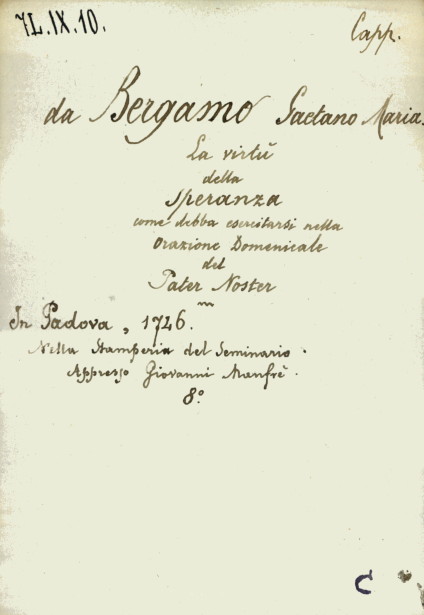 7L.IX.10.
Capp.
da Bergamo Gaetano Maria.
La virtù
della
Speranza
come debba esercitarsi nella
Orazione Domenicale
del
Pater Noster
In Padova, 1746.
Nella Stamperia del Seminario.
Appresso Giovanni Manfrè.
8.°
C